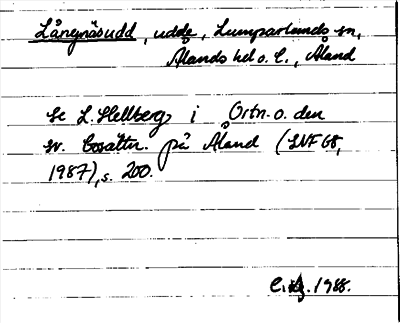 Långnäsudd, udde, Lumparlands sn,
Ålands hd o. l., Åland
Se L. Hellberg i Ortn. o. den
sv. bosättn. på Åland (SNF 68,
1987), s. 200.
1988.